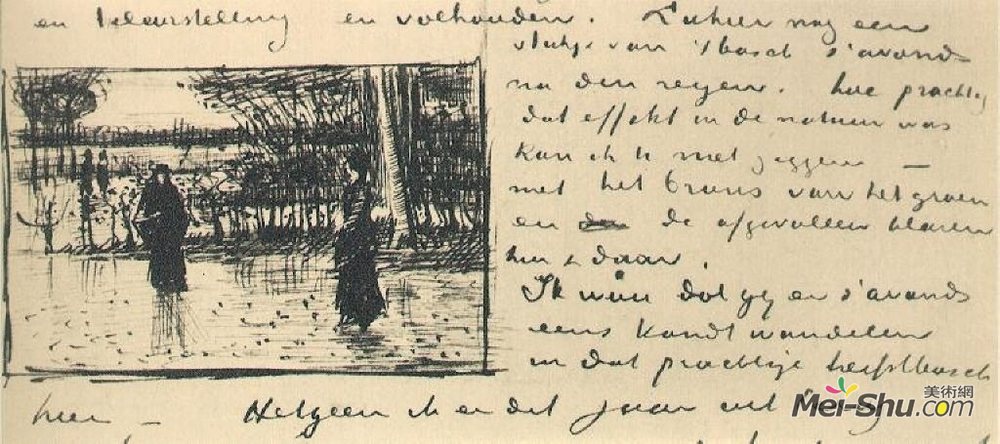 en teleurstelling en volhouden. Ziehier nog een
stukje van 'tbosch s'avonds
na den regen. hoe prachtig
dat effekt in de natuur was
Kan ik U niet zeggen —
met het brons van het groen
en de afgevallen blaren
hier & daar.
Ik wou dat gij er s'avonds
eens kondt wandelen
in dat prachtige herfstbosch
hier — Hetgeen ik er dit jaar uit
美術網
Mei-Shu.com